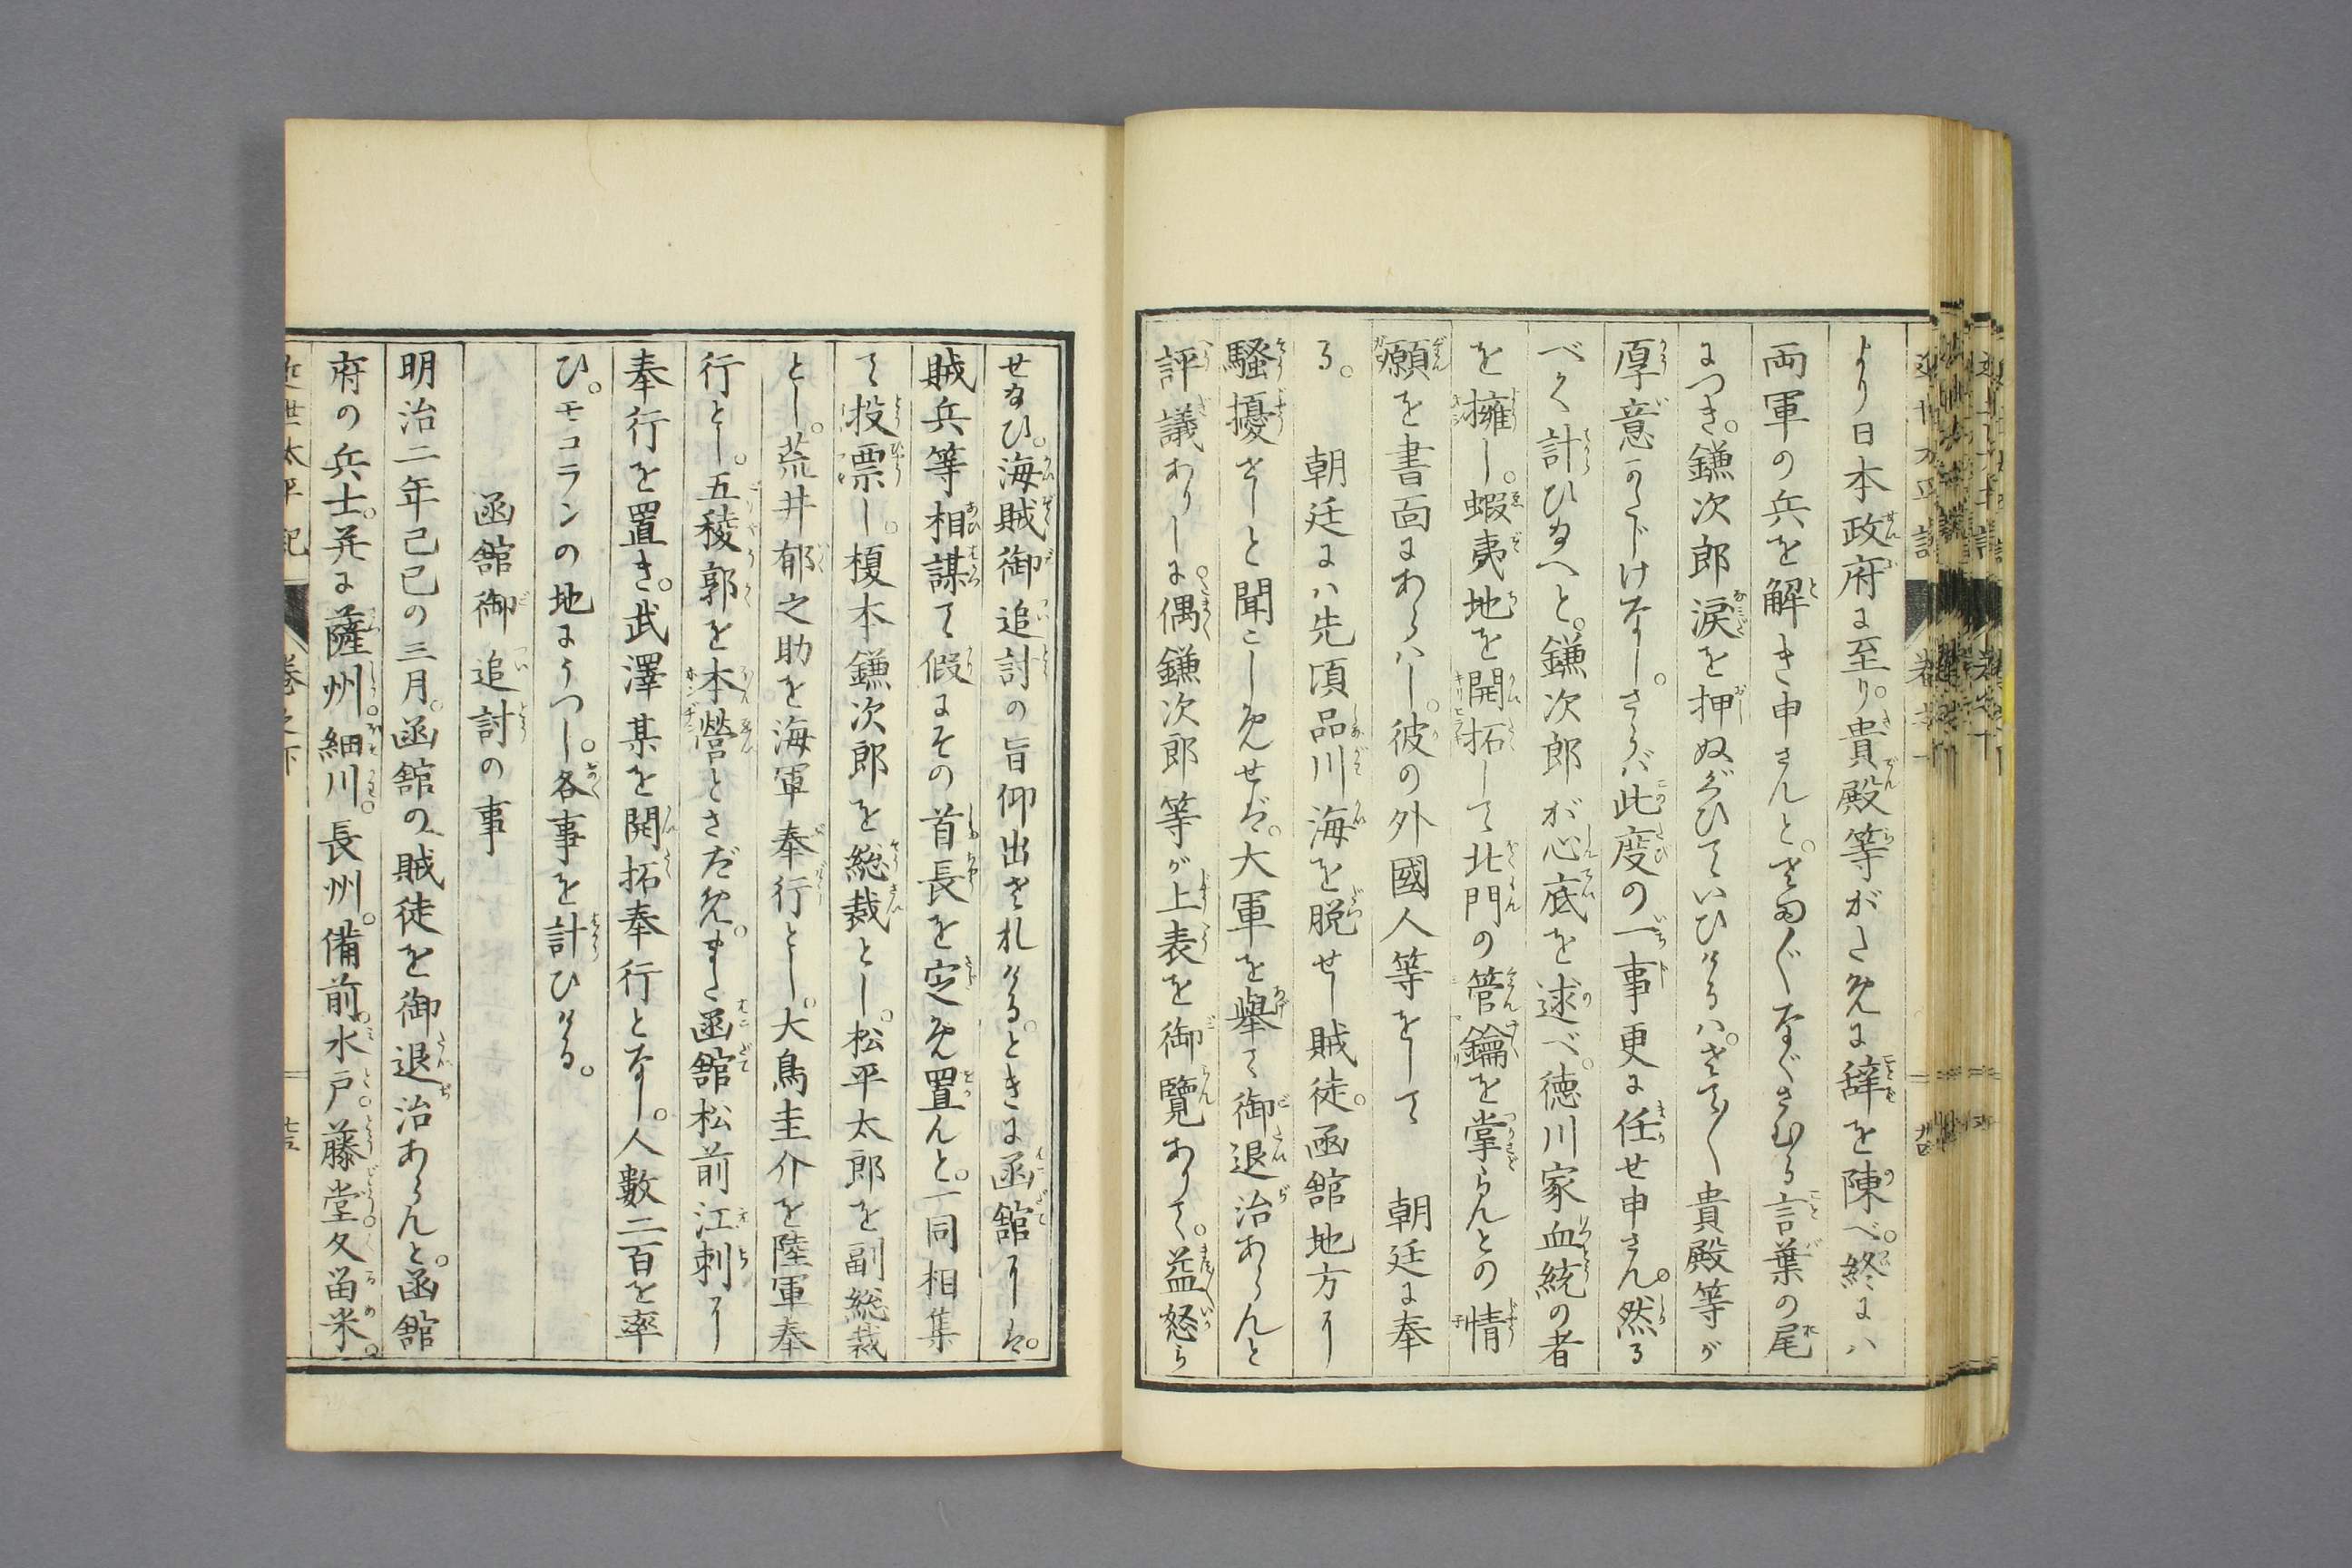 より日本政府に至り。貴殿等がために辞を陳べ。終にハ
両軍の兵を解き申さんと。さま〴〵なぐさむる言葉の尾
につき。鎌次郎涙を押ぬぐひていひけるハ。さて〳〵貴殿等が
厚意かたじけなし。さらバ此度の一事更に任せ申さん。然る
べく計ひ給へと。鎌次郎が心底を述べ。徳川家血統の者
を擁し。蝦夷地を開拓して北門の管鑰を掌らんとの情
願を書面にあらハし。彼の外國人等をして　朝廷に奉
る。　朝廷にハ先頃品川海を脱せし賊徒。函舘地方を
騒擾せしと聞こしめせバ。大軍を擧て御退治あらんと
評議ありしに。偶鎌次郎等が上表を御覽ありて。益怒ら
せ給ひ。海賊御追討の旨仰出されける。ときに函舘にハ。
賊兵等相謀て假にその首長を定め置んと。一同相集
て投票し。榎本鎌次郎を総裁とし。松平太郎を副総裁
とし。荒井郁之助を海軍奉行とし。大鳥圭介を陸軍奉
行とし。五稜郭を本營とさだめ。また函舘松前江刺に
奉行を置き。武澤某を開拓奉行となし。人數二百を率
ひ。モコランの地にうつし。各事を計ひける。
函舘御追討の事
明治二年己巳の三月。函舘の賊徒を御退治あらんと。函舘
府の兵士。并に薩州。細川。長州。備前水戸。藤堂久留米。
近世太平記　巻之下